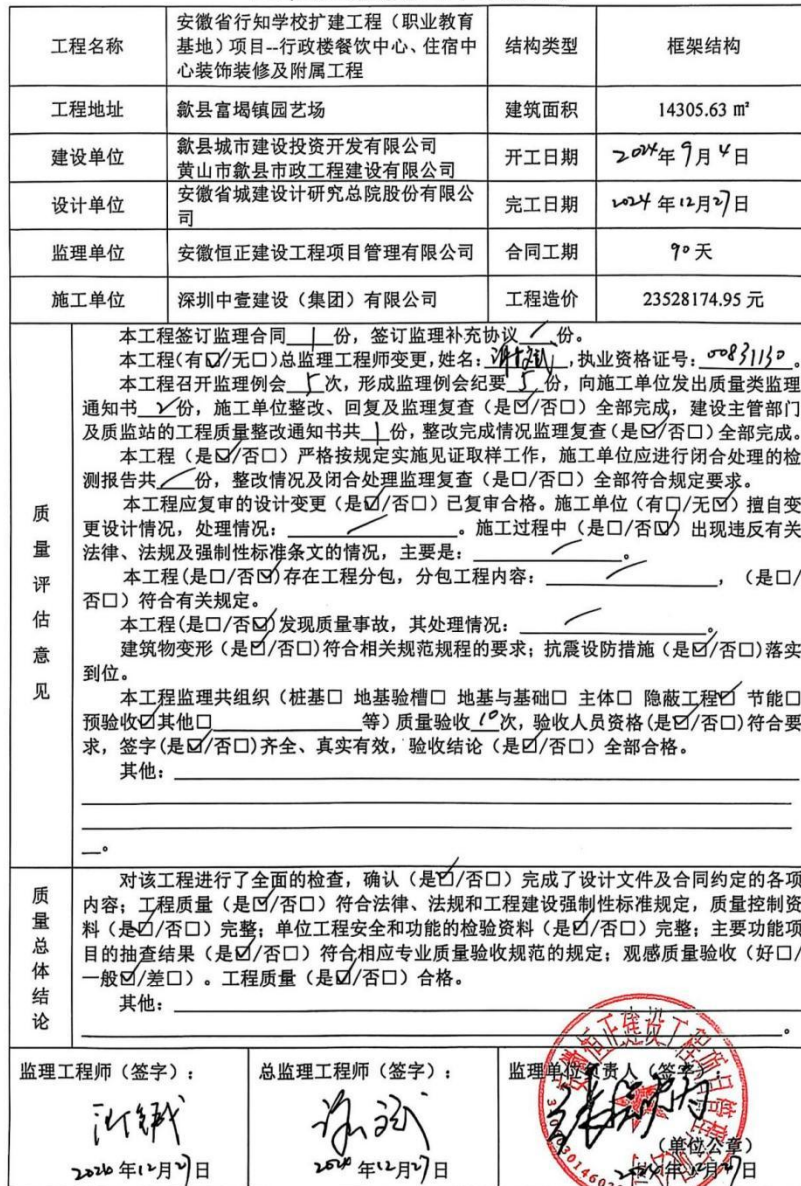 工程名称
安徽省行知学校扩建工程（职业教育
基地）项目--行政楼餐饮中心、住宿中
心装饰装修及附属工程
结构类型
框架结构
工程地址
歙县富堨镇园艺场
建筑面积
14305.63 ㎡
建设单位
歙县城市建设投资开发有限公司
黄山市歙县市政工程建设有限公司
开工日期
2024年9月4日
设计单位
安徽省城建设计研究总院股份有限公
司
完工日期
2024年12月27日
监理单位
安徽恒正建设工程项目管理有限公司
合同工期
90天
施工单位
深圳中壹建设（集团）有限公司
工程造价
23528174.95 元
质量评估意见
本工程签订监理合同 1 份，签订监理补充协议 / 份。
本工程(有☑/无☐)总监理工程师变更,姓名: ,执业资格证号: 00831130 。
本工程召开监理例会 5 次，形成监理例会纪要 5 份，向施工单位发出质量类监理
通知书 2 份，施工单位整改、回复及监理复查（是☑/否☐）全部完成，建设主管部门
及质监站的工程质量整改通知书共 1 份，整改完成情况监理复查（是☑/否☐）全部完成。
本工程（是☑/否☐）严格按规定实施见证取样工作，施工单位应进行闭合处理的检
测报告共 / 份，整改情况及闭合处理监理复查（是☐/否☐）全部符合规定要求。
本工程应复审的设计变更（是☑/否☐）已复审合格。施工单位（有☐/无☑）擅自变
更设计情况，处理情况： / 。施工过程中（是☐/否☑）出现违反有关
法律、法规及强制性标准条文的情况，主要是： / 。
本工程(是☐/否☑)存在工程分包，分包工程内容： / ，（是☐/
否☐）符合有关规定。
本工程(是☐/否☑)发现质量事故，其处理情况： / 。
建筑物变形（是☑/否☐)符合相关规范规程的要求；抗震设防措施（是☑/否☐)落实
到位。
本工程监理共组织（桩基☐ 地基验槽☐ 地基与基础☐ 主体☐ 隐蔽工程☑ 节能☐
预验收☑其他☐ 等）质量验收 10 次，验收人员资格(是☑/否☐)符合要
求，签字(是☑/否☐)齐全、真实有效，验收结论（是☑/否☐）全部合格。
其他：
。
质量总体结论
对该工程进行了全面的检查，确认（是☑/否☐）完成了设计文件及合同约定的各项
内容；工程质量（是☑/否☐）符合法律、法规和工程建设强制性标准规定，质量控制资
料（是☑/否☐）完整；单位工程安全和功能的检验资料（是☑/否☐）完整；主要功能项
目的抽查结果（是☑/否☐）符合相应专业质量验收规范的规定；观感质量验收（好☐/
一般☑/差☐）。工程质量（是☑/否☐）合格。
其他： 。
监理工程师（签字）：
年12月27日
总监理工程师（签字）：
年12月27日
监理单位负责人（签字）
（单位公章）
年12月27日